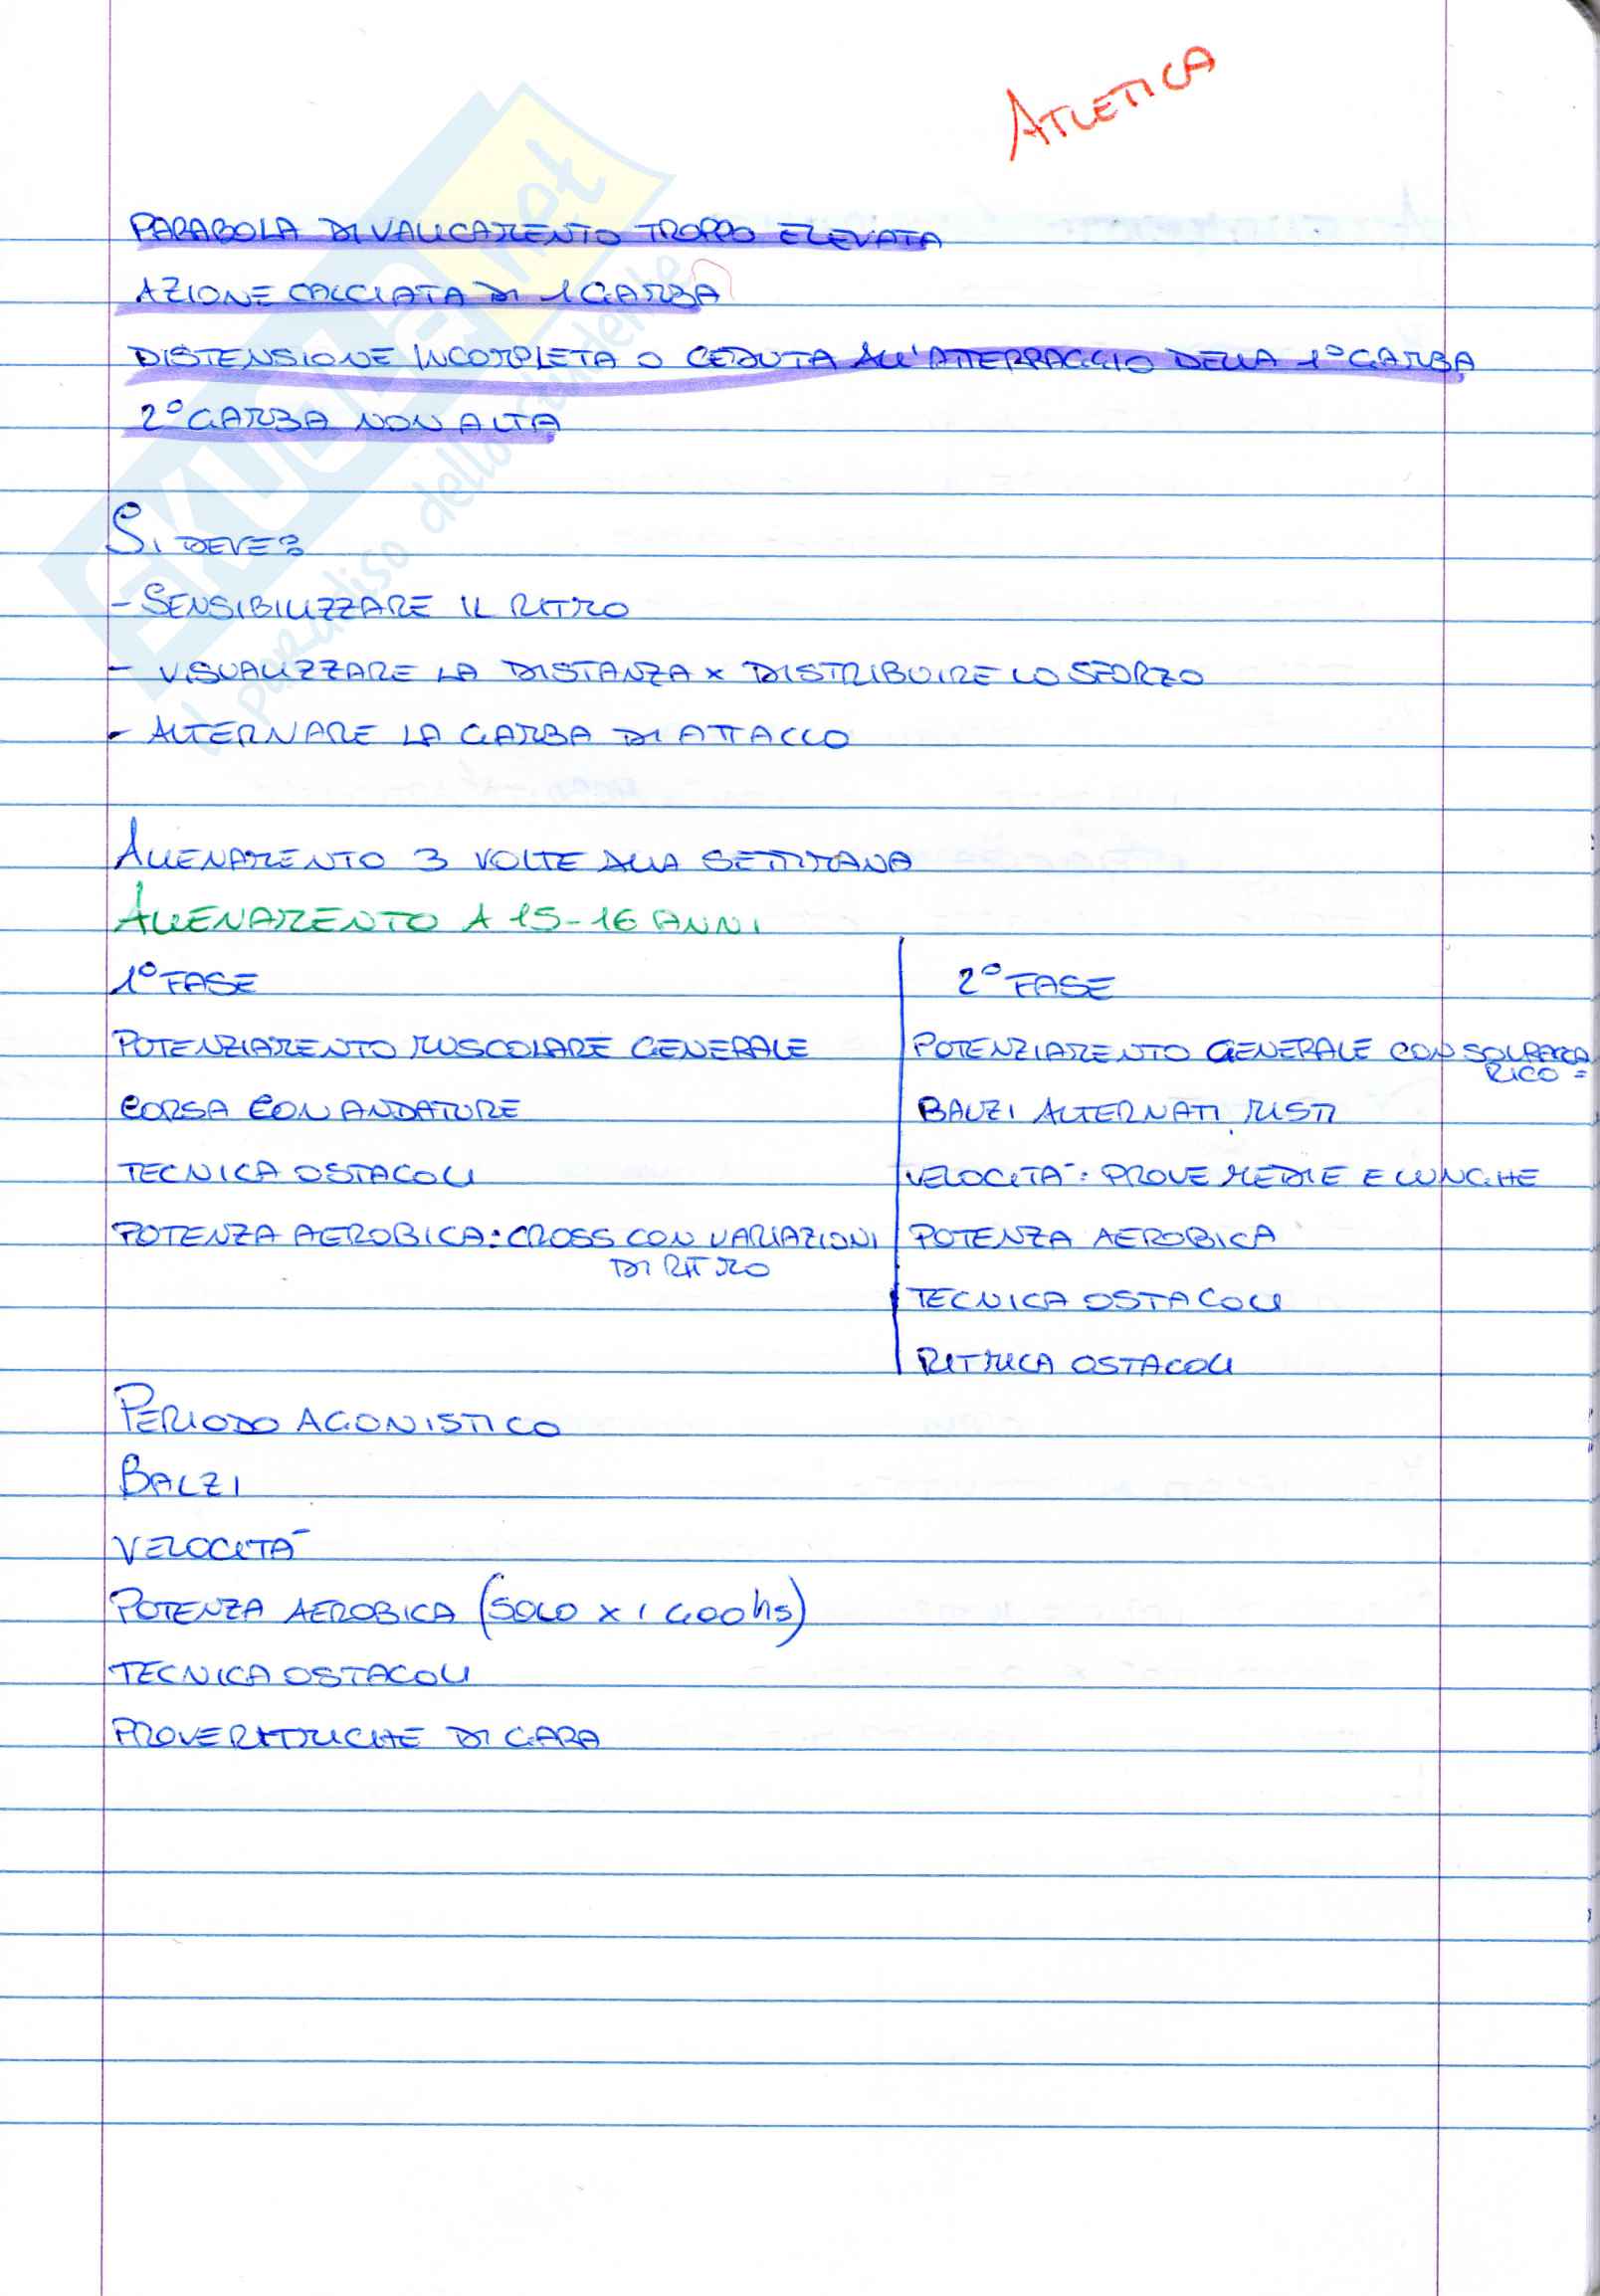 ATLETICA
PARABOLA DI VALICAMENTO TROPPO ELEVATA
AZIONE CALCIATA DI 1 GAMBA
DISTENSIONE INCOMPLETA O CEDUTA ALL'ATTERRAGGIO DELLA 1° GAMBA
2° GAMBA NON ALTA
SI DEVE:
- SENSIBILIZZARE IL RITMO
- VISUALIZZARE LA DISTANZA x DISTRIBUIRE LO SFORZO
- ALTERNARE LA GAMBA DI ATTACCO
ALLENAMENTO 3 VOLTE ALLA SETTIMANA
ALLENAMENTO A 15-16 ANNI
1° FASE
POTENZIAMENTO MUSCOLARE GENERALE
CORSA CON ANDATURE
TECNICA OSTACOLI
POTENZA AEROBICA: CROSS CON VARIAZIONI
DI RITMO
2° FASE
POTENZIAMENTO GENERALE CON SOVRACCA
RICO =
BALZI ALTERNATI MISTI
VELOCITÀ: PROVE MEDIE E LUNGHE
POTENZA AEROBICA
TECNICA OSTACOLI
RITMICA OSTACOLI
PERIODO AGONISTICO
BALZI
VELOCITÀ
POTENZA AEROBICA (SOLO x I 400hs)
TECNICA OSTACOLI
PROVE RITMICHE DI GARA
SKUOLA.net
il paradiso dello studente